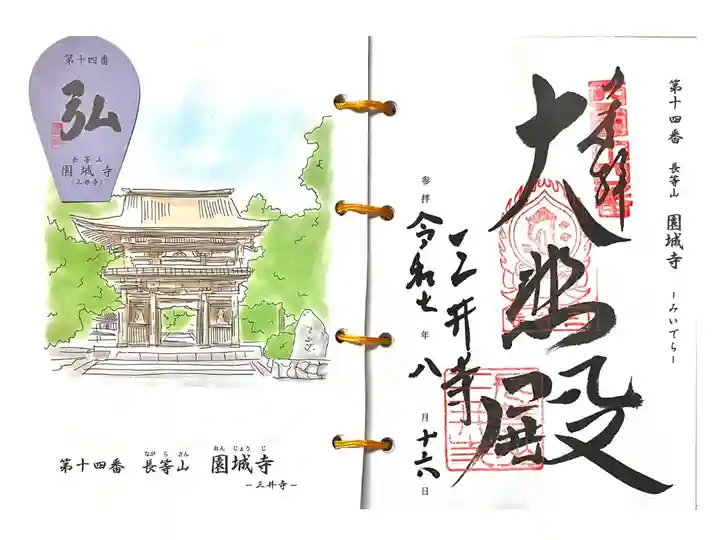 第十四番
弘
長等山
園城寺
(三井寺)
なが ら さん おん じょう じ
第十四番 長等山 園城寺
-三井寺-
第十四番 長等山 園城寺 -みいでら-
奉拝
大悲殿
三井寺
参拝 令和七年八月十六日